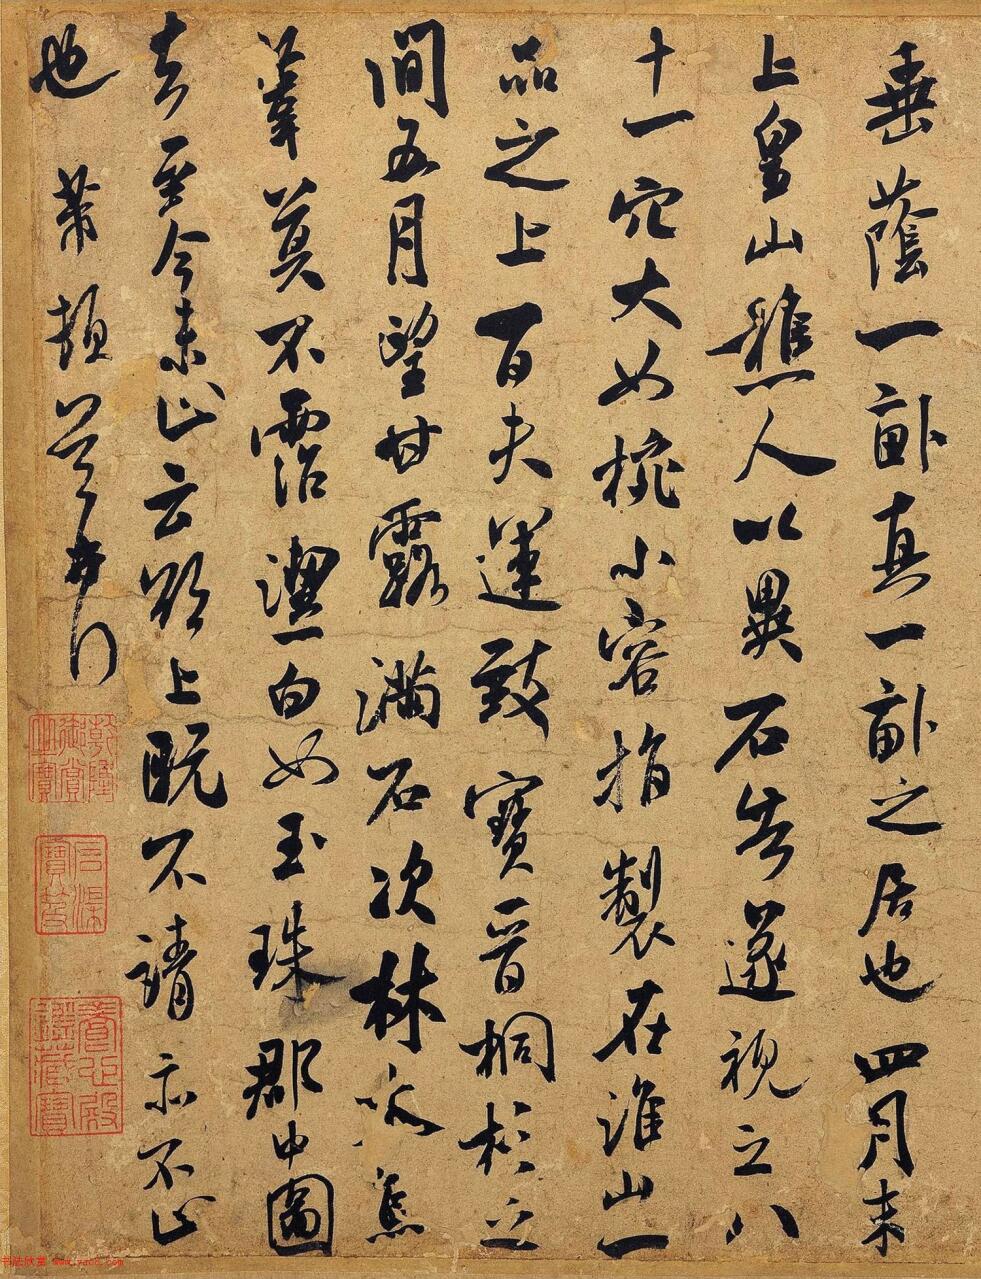 垂蔭一畝真一畝之居也四月末
上皇山樵人以異石告遂視之八
十一穴大如椀小容指製在淮山一
品之上百夫運致寶晉桐杉之
間五月望甘露滿石次林木焉
葦莫不霑潔白如玉珠郡中圖
去至今未止云欲上既不請亦不止
也 芾頓首再拜
乾隆御賞之寶
石渠寶笈
養心殿鑑藏寶
书法欣赏 www.yac8.com